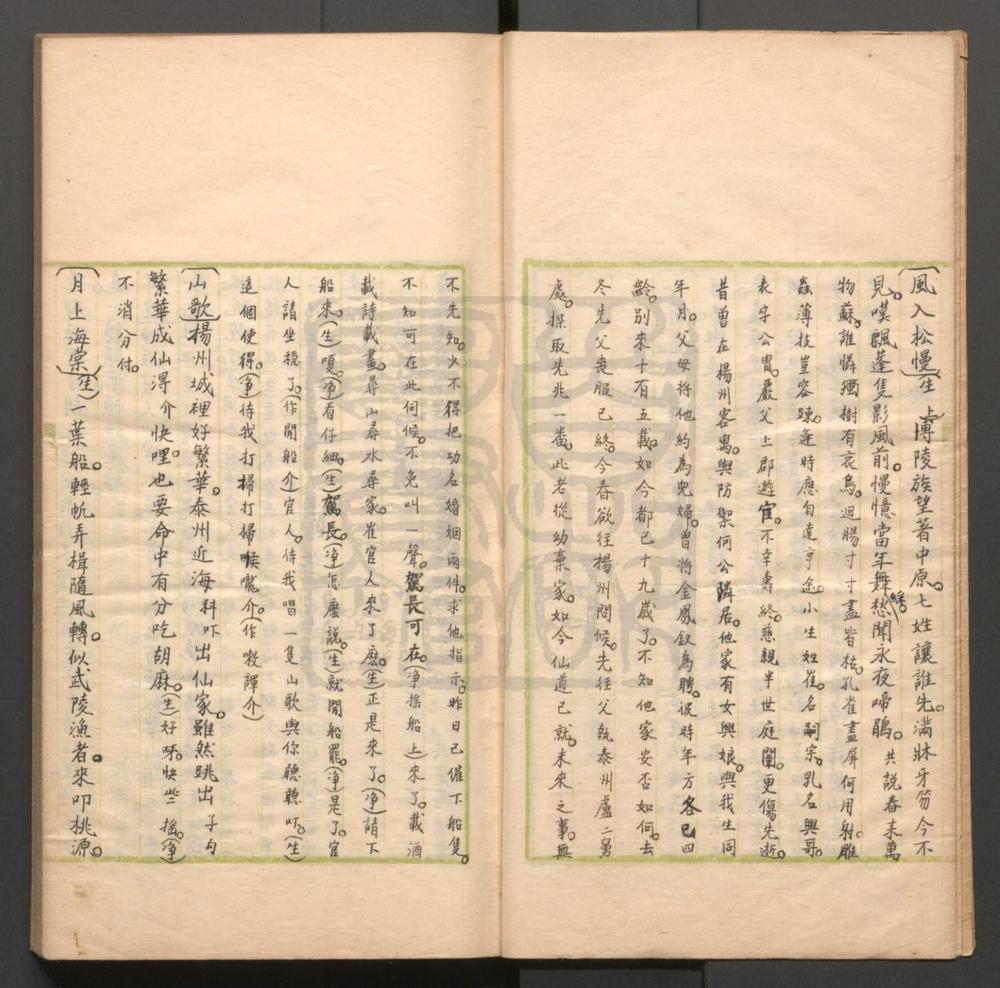 〔風入松慢〕(生上)博陵族望著中原。七姓讓誰先。滿牀牙笏今不
見。嘆飄蓬隻影風前。慢憶當年舞綵愁聞永夜啼鵑。共說春來萬
物蘇。誰憐獨樹有哀烏。迴腸寸寸盡皆枯。孔雀畫屏何用射。雕
蟲薄技豈容疎。逢時應自達亨途。小生姓崔。名嗣宗。乳名興哥。
表字公胄。嚴父上郡遊宦。不幸壽終。慈親半世庭闈。更傷先逝。
昔曾在揚州客寓。與防禦何公隣居。他家有女興娘。與我生同
年月。父母將他約為兒婦。曾將金鳳釵為聘。彼時年方各已四
齡。別來十有五載。如今都已十九歲了。不知他家安否如何。去
冬先父喪服已終。今春欲往楊州問候。先往父執泰州盧二舅
處。探取先兆一番。此老從幼棄家。如今仙道已就。未來之事。無
不先知。少不得把功名婚姻兩件。求他指示。昨日已催下船隻。
不知可在此伺候。不免叫一聲。駕長可在。(淨搖船上)來了。載酒
載詩載畫。尋山尋水尋家。崔官人來了麽。(生)正是來了。(淨)請下
船來。(生)嗄。(淨)看仔細。(生)駕長。(淨)怎麽說。(生)就開船罷。(淨)是了。官
人請坐穩了。(作開船介)官人。待我唱一隻山歌與你聽聽吓。(生)
這個使得。(淨)待我打掃打掃喉嚨介。(作嗽諢介)
〔山歌〕揚州城裡好繁華。泰州近海料吓出仙家。雖然跳出子句
繁華成仙淂介快哩。也要命中有分吃胡麻。(生)好呀。快些搖。(淨)
不消分付。
〔月上海棠〕(生)一葉船輕帆弄楫隨風轉。似武陵漁者。來叩桃源。